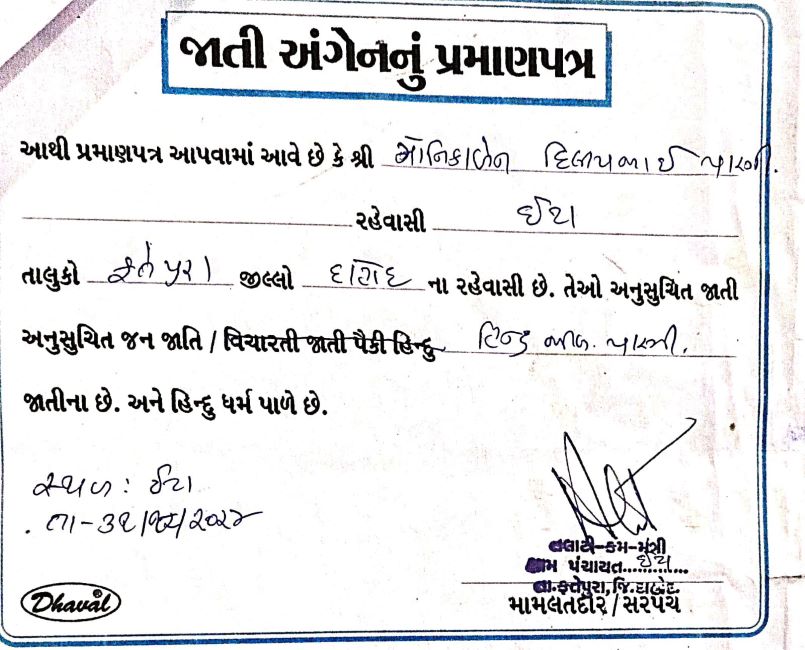 જાતી અંગેનનું પ્રમાણપત્ર
આથી પ્રમાણપત્ર આપવામાં આવે છે કે શ્રી મોનિકાબેન દિલીપભાઈ પારગી.
રહેવાસી ઈટા
તાલુકો ફતેપુરા જીલ્લો દાહોદ ના રહેવાસી છે. તેઓ અનુસુચિત જાતી
અનુસુચિત જન જાતિ / વિચારતી જાતી પૈકી હિન્દુ હિન્દુ ભીલ પારગી.
જાતીના છે. અને હિન્દુ ધર્મ પાળે છે.
સ્થળ : ઈટા
તલાટી-કમ-મંત્રી
ગ્રામ પંચાયત....ઈટા....
તા.ફતેપુરા,જિ.દાહોદ.
મામલતદાર / સરપંચ
Dhaval